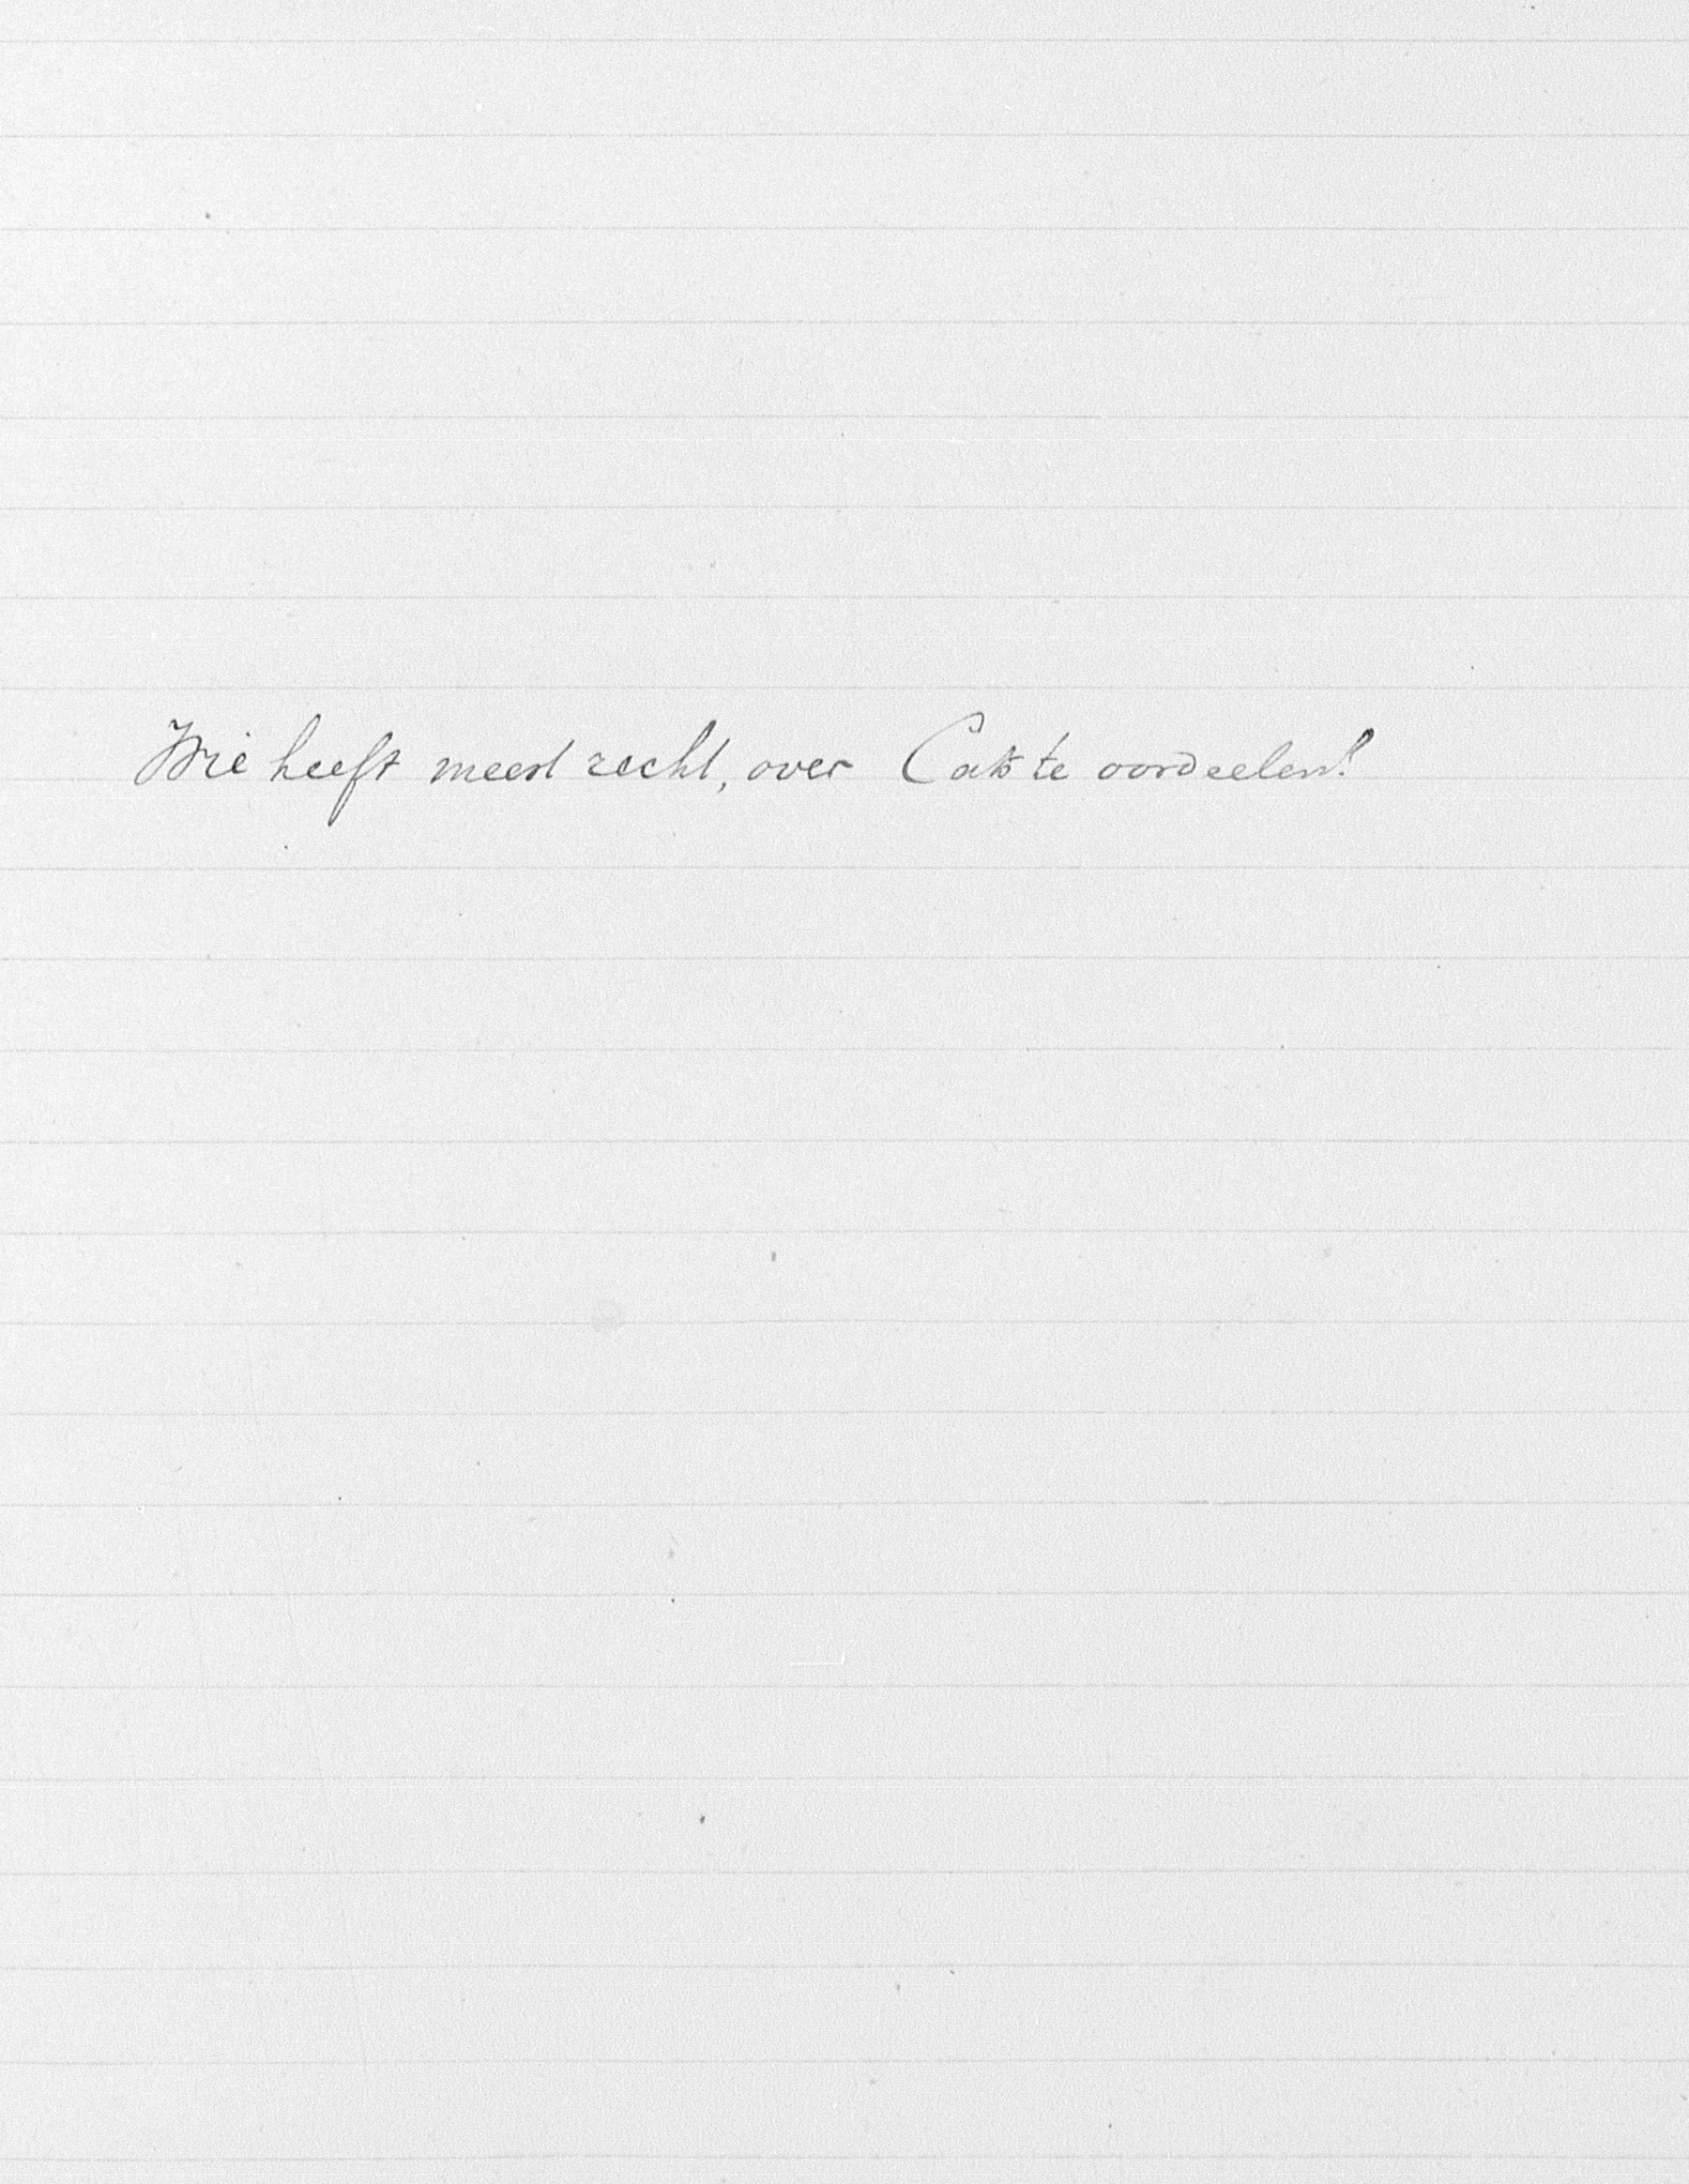 Wie heeft meest recht, over Cats te oordeelen?